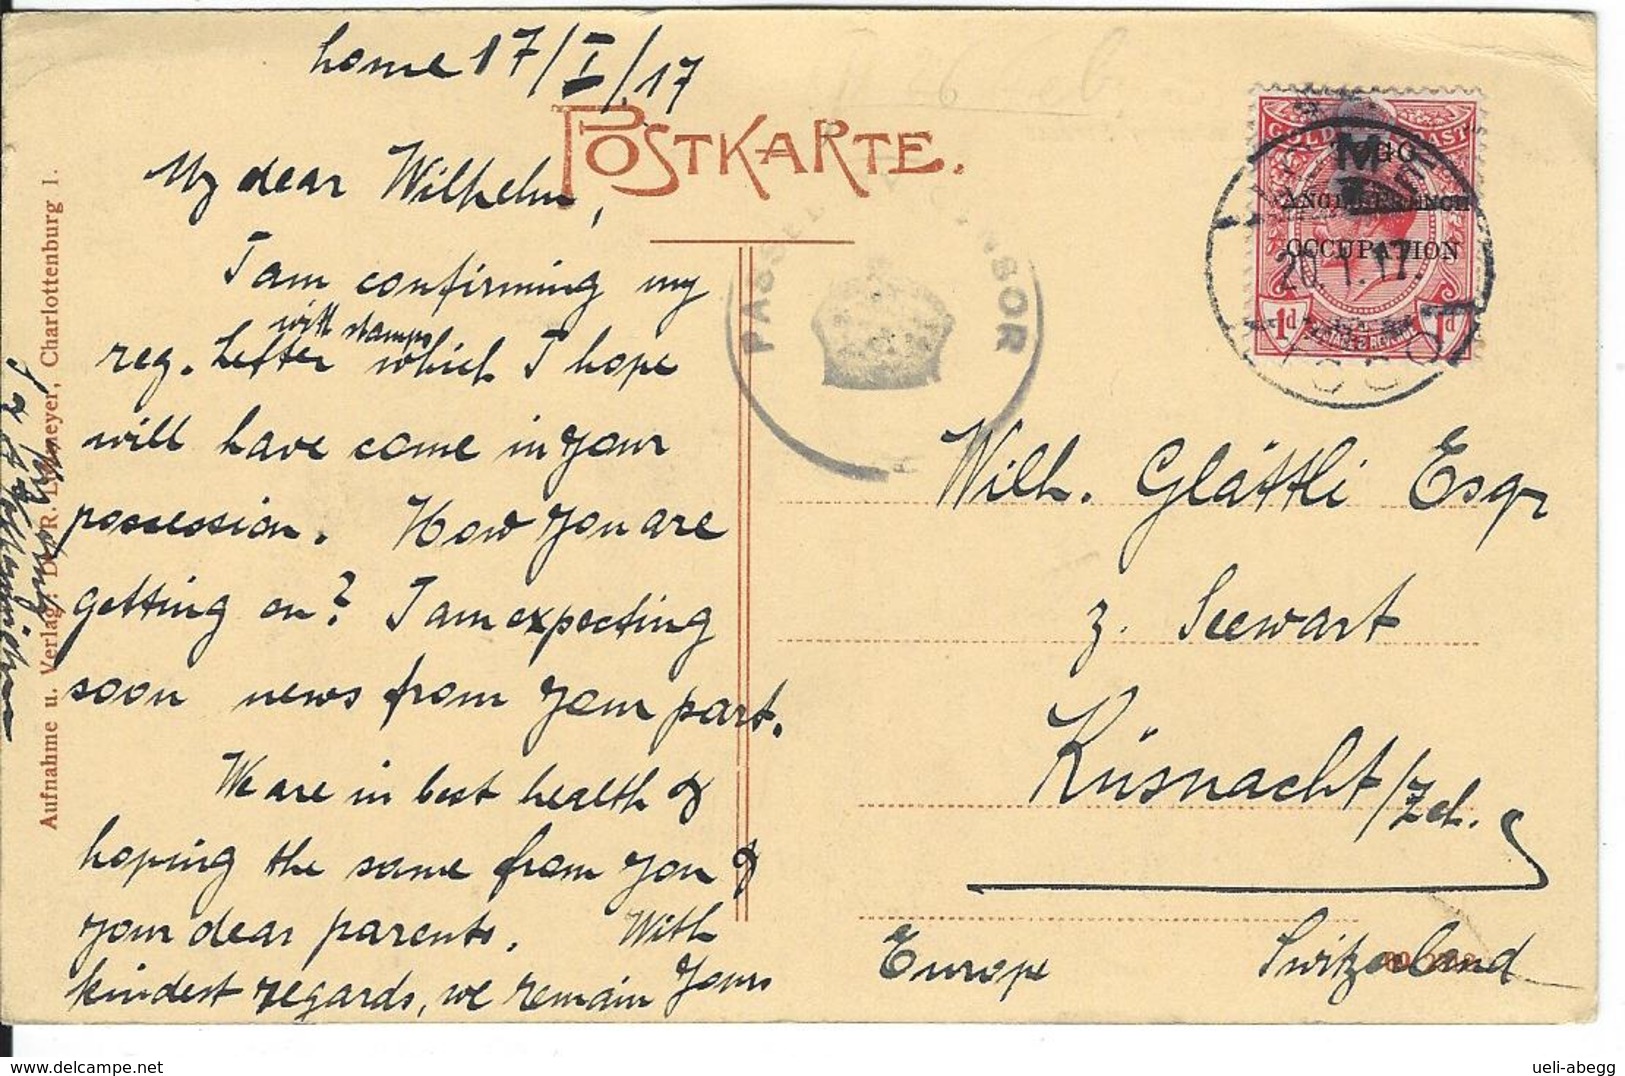 home 17/I/17
POSTKARTE.
My dear Wilhelm,
I am confirming my
with stamps
reg. Letter which I hope
will have come in your
possession. How you are
getting on? I am expecting
soon news from your part.
We are in best health &
hoping the same from you &
your dear parents. With
kindest regards, we remain Yours
Aufnahme u. Verlag: Dr. R. Lohmeyer, Charlottenburg 1.
PASSED CENSOR
GOLD COAST
TOGO
ANGLO-FRENCH
OCCUPATION
1d 1d
POSTAGE & REVENUE
20.1.17.
Wilh. Glättli Esqr
z. Seewart
Küsnacht/Zch.
Europe Switzerland
ueli-abegg